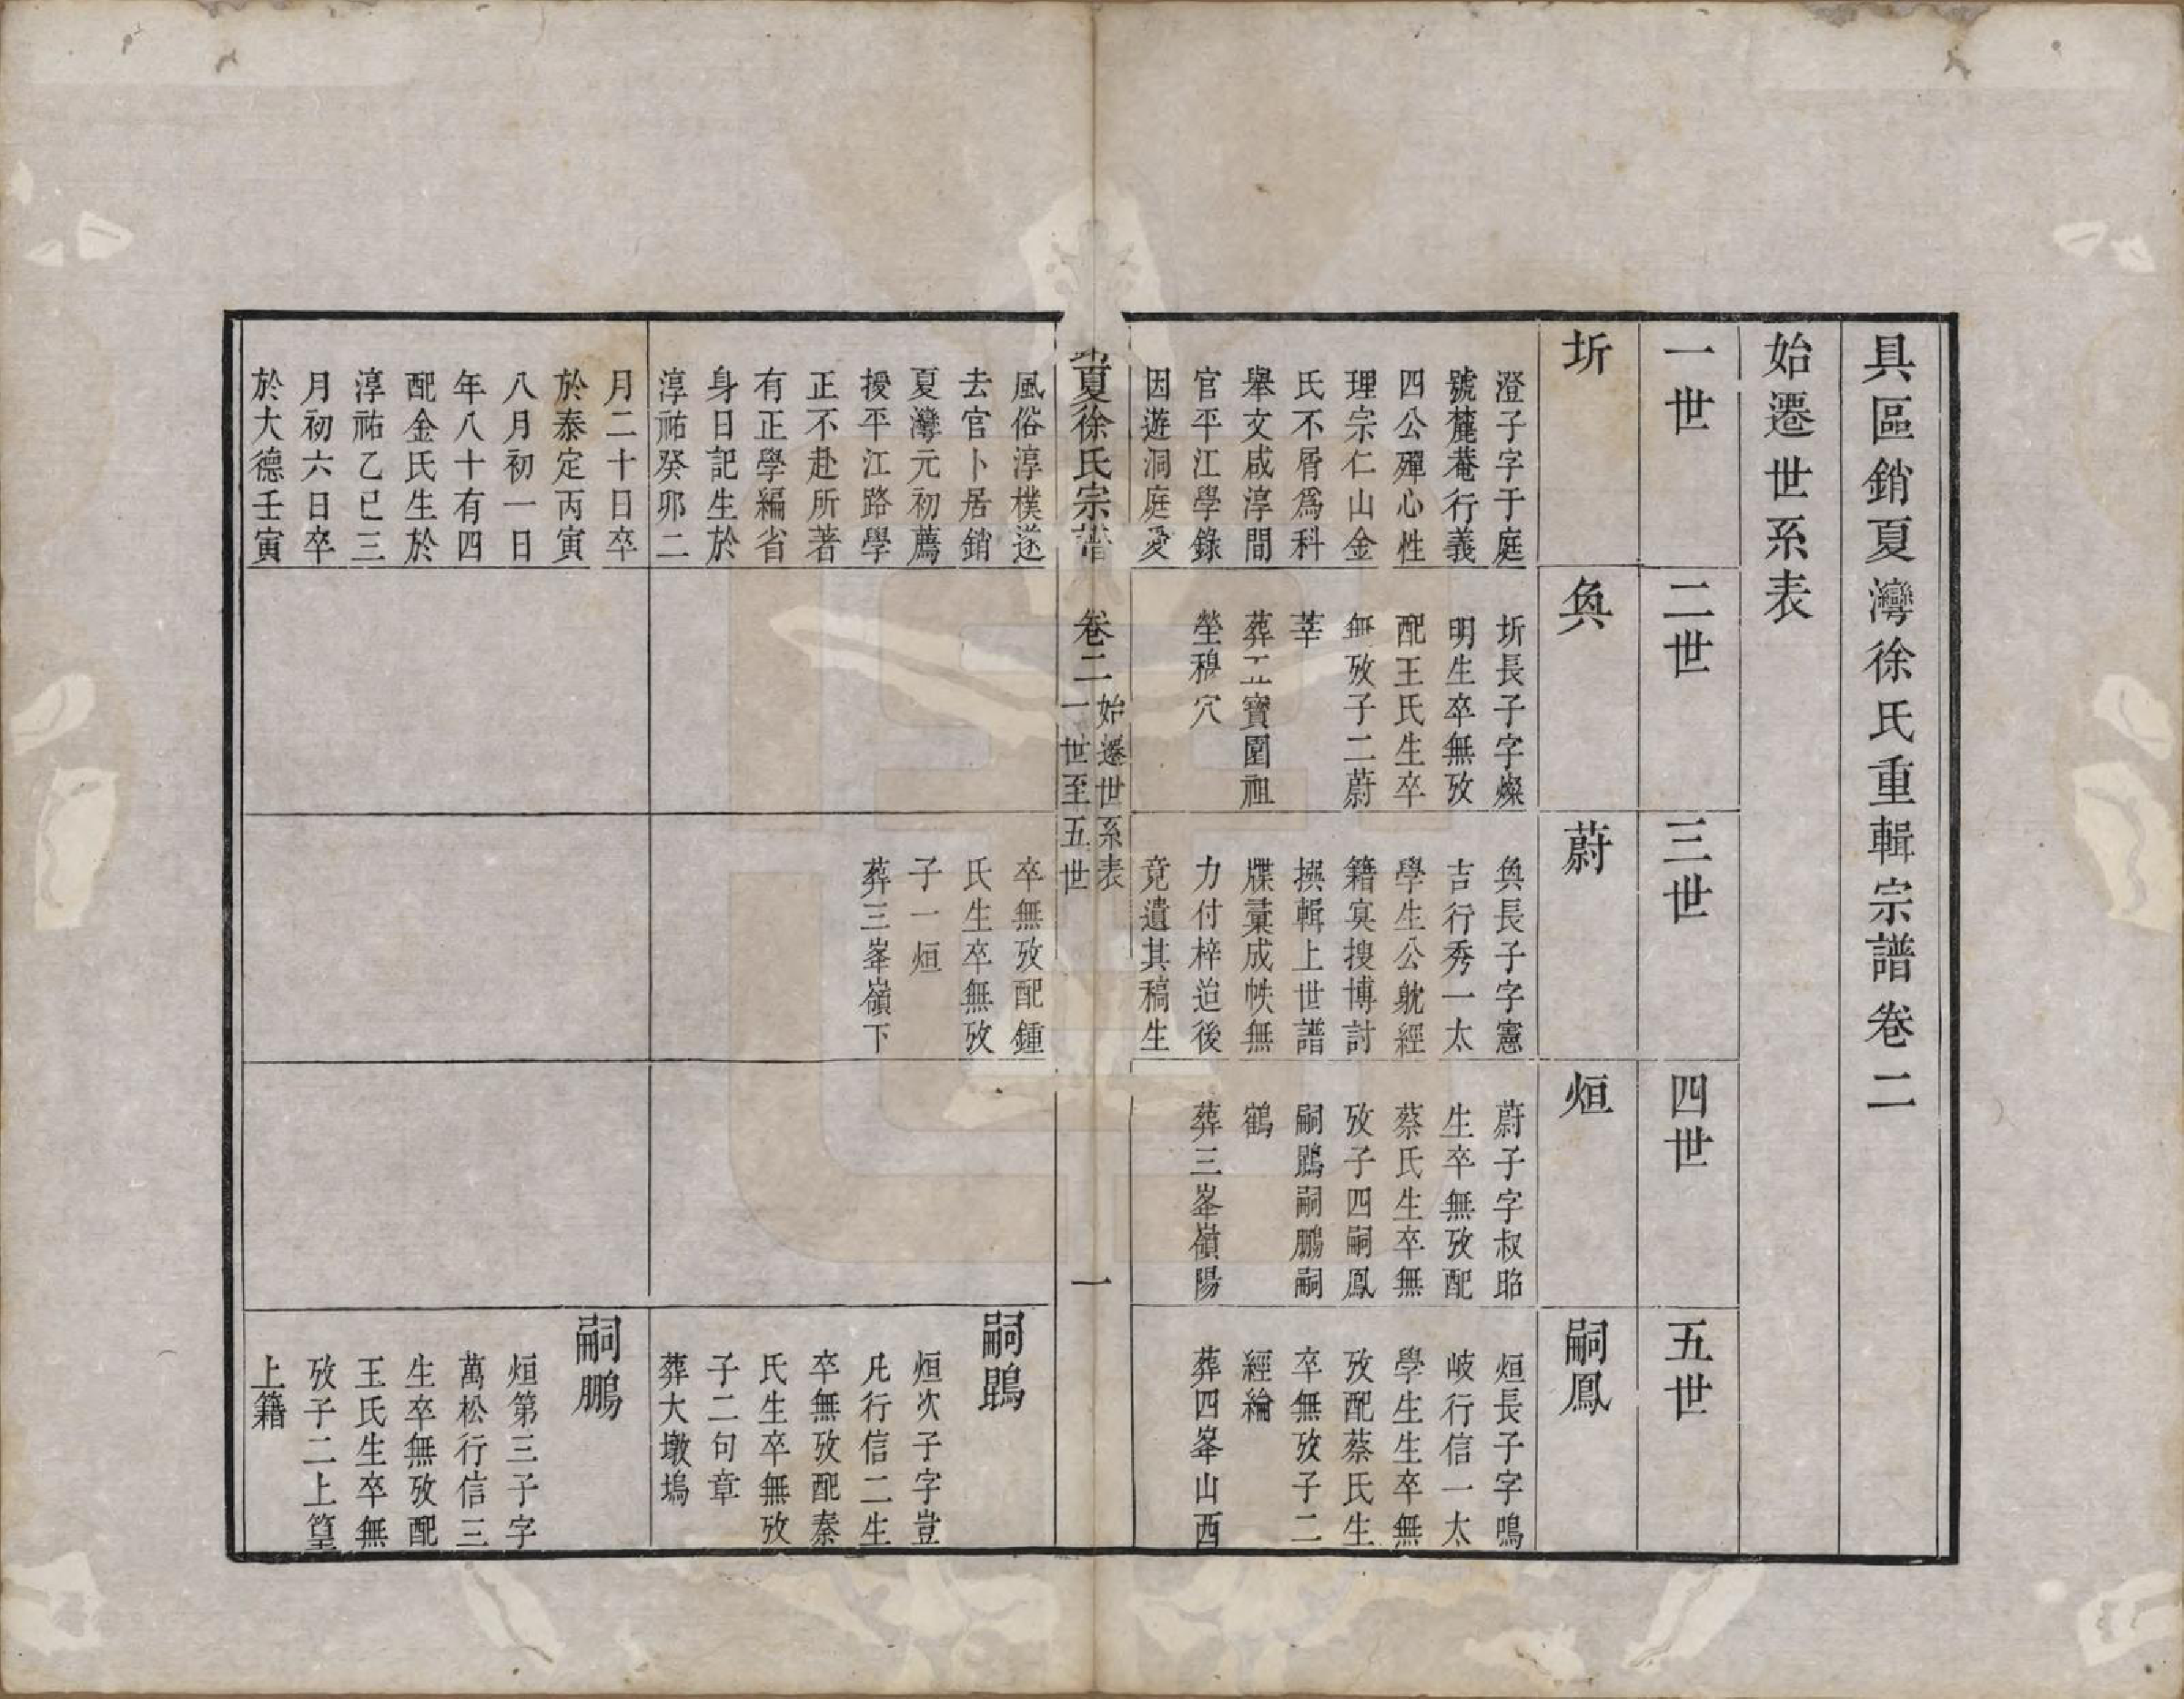 具區銷夏灣徐氏重輯宗譜卷二
始遷世系表
一世
二世
三世
四世
五世
圻
澄子字于庭
號麓菴行義
四公殫心性
理宗仁山金
氏不屑爲科
舉文咸淳間
官平江學錄
因遊洞庭愛
奐
圻長子字燦
明生卒無攷
配王氏生卒
無攷子二蔚
莘
葬五寶園祖
塋穆穴
蔚
奐長子字憲
吉行秀一太
學生公躭經
籍㝠搜博討
撰輯上世譜
牒藳成帙無
力付梓迨後
竟遺其稿生
烜
蔚子字叔昭
生卒無攷配
蔡氏生卒無
攷子四嗣鳳
嗣鵾嗣鵬嗣
鶴
葬三峯嶺陽
嗣鳳
烜長子字鳴
岐行信一太
學生生卒無
攷配蔡氏生
卒無攷子二
經綸
葬四峯山西
夏徐氏宗譜
卷二
始遷世系表
一世至五世
一
風俗淳樸遂
去官卜居銷
夏灣元初薦
擾平江路學
正不赴所著
有正學編省
身日記生於
淳祐癸卯二
月二十日卒
於泰定丙寅
八月初一日
年八十有四
配金氏生於
淳祐乙巳三
月初六日卒
於大德壬寅
卒無攷配鍾
氏生卒無攷
子一烜
葬三峯嶺下
嗣鵾
烜次子字豈
凡行信二生
卒無攷配秦
氏生卒無攷
子二句章
葬大墩塢
嗣鵬
烜第三子字
萬松行信三
生卒無攷配
王氏生卒無
攷子二上篁
上籍